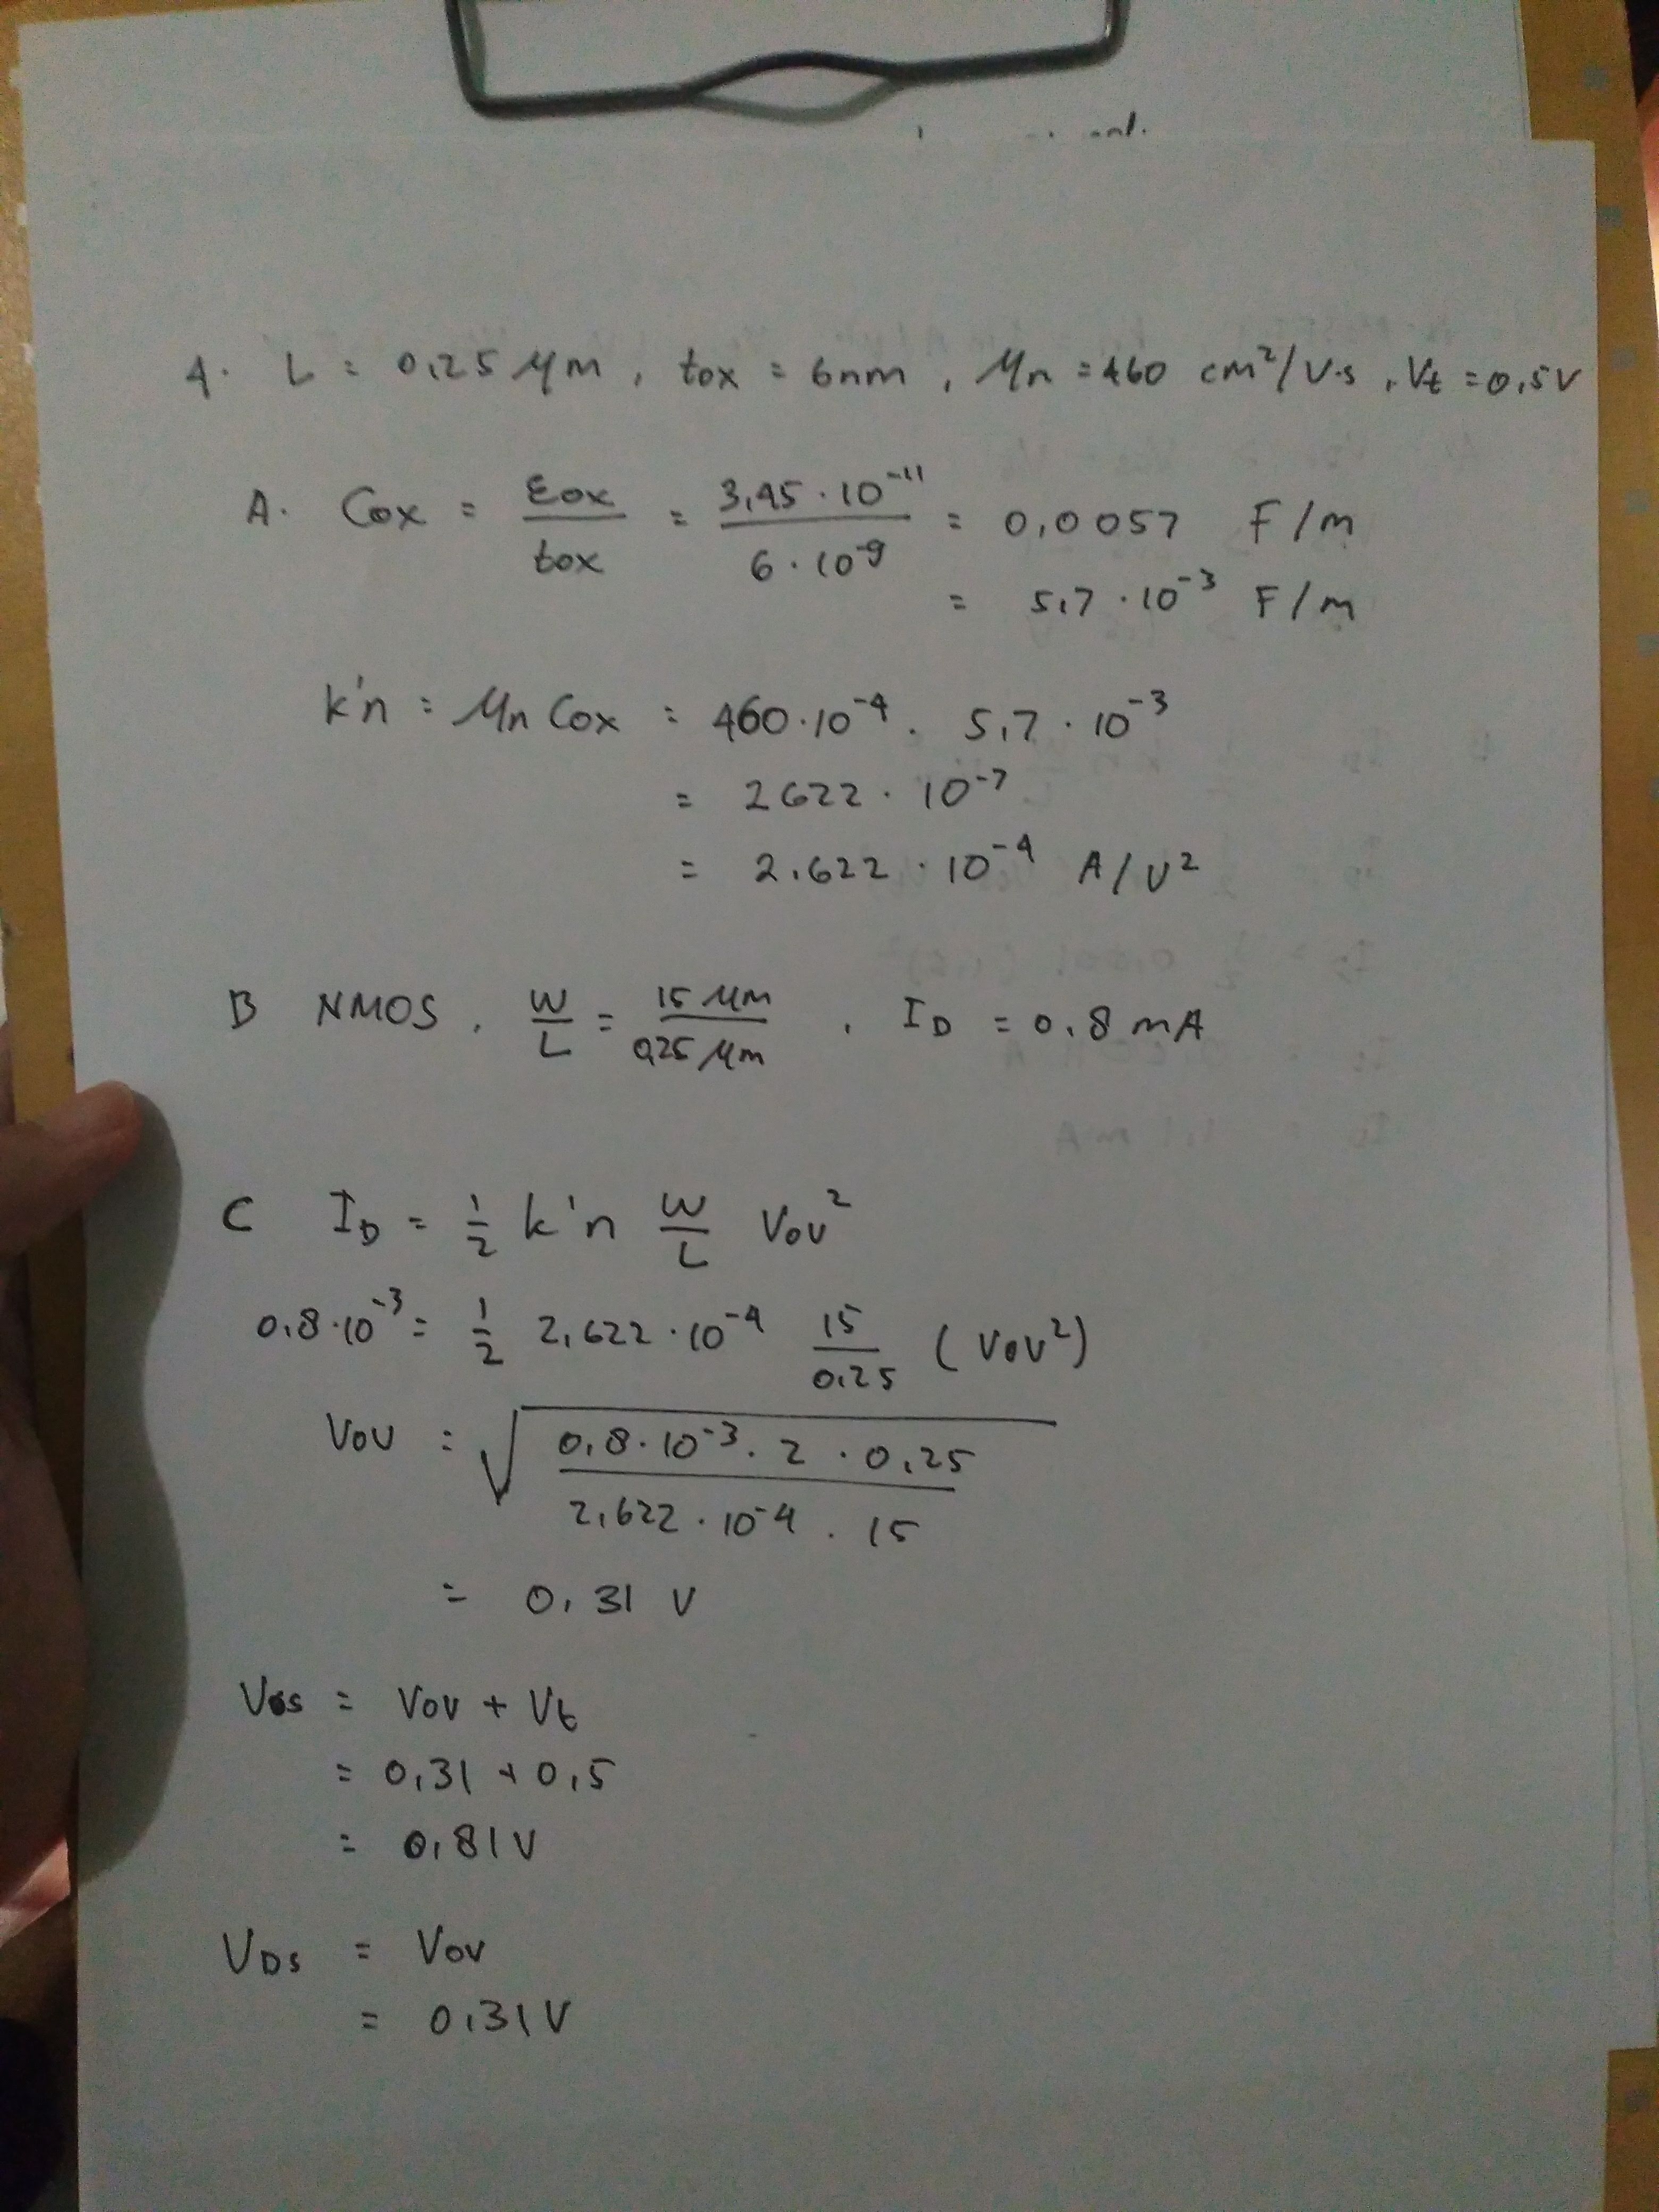 4. L = 0,25 μm, tox = 6nm, μn = 460 cm²/V·s, Vt = 0,5V
A. Cox = εox / tox = 3,45 · 10⁻¹¹ / 6 · 10⁻⁹ = 0,0057 F/m
= 5,7 · 10⁻³ F/m
k'n = μn Cox = 460 · 10⁻⁴ . 5,7 · 10⁻³
= 2622 · 10⁻⁷
= 2.622 · 10⁻⁴ A/V²
B NMOS, W/L = 15 μm / 0,25 μm , ID = 0.8 mA
C ID = 1/2 k'n W/L Vov²
0,8 · 10⁻³ = 1/2 2,622 · 10⁻⁴ 15/0.25 (Vov²)
Vov = √(0,8 · 10⁻³ . 2 · 0,25 / 2,622 · 10⁻⁴ . 15)
= 0,31 V
VGS = Vov + Vt
= 0,31 + 0,5
= 0,81V
VDS = Vov
= 0,31V